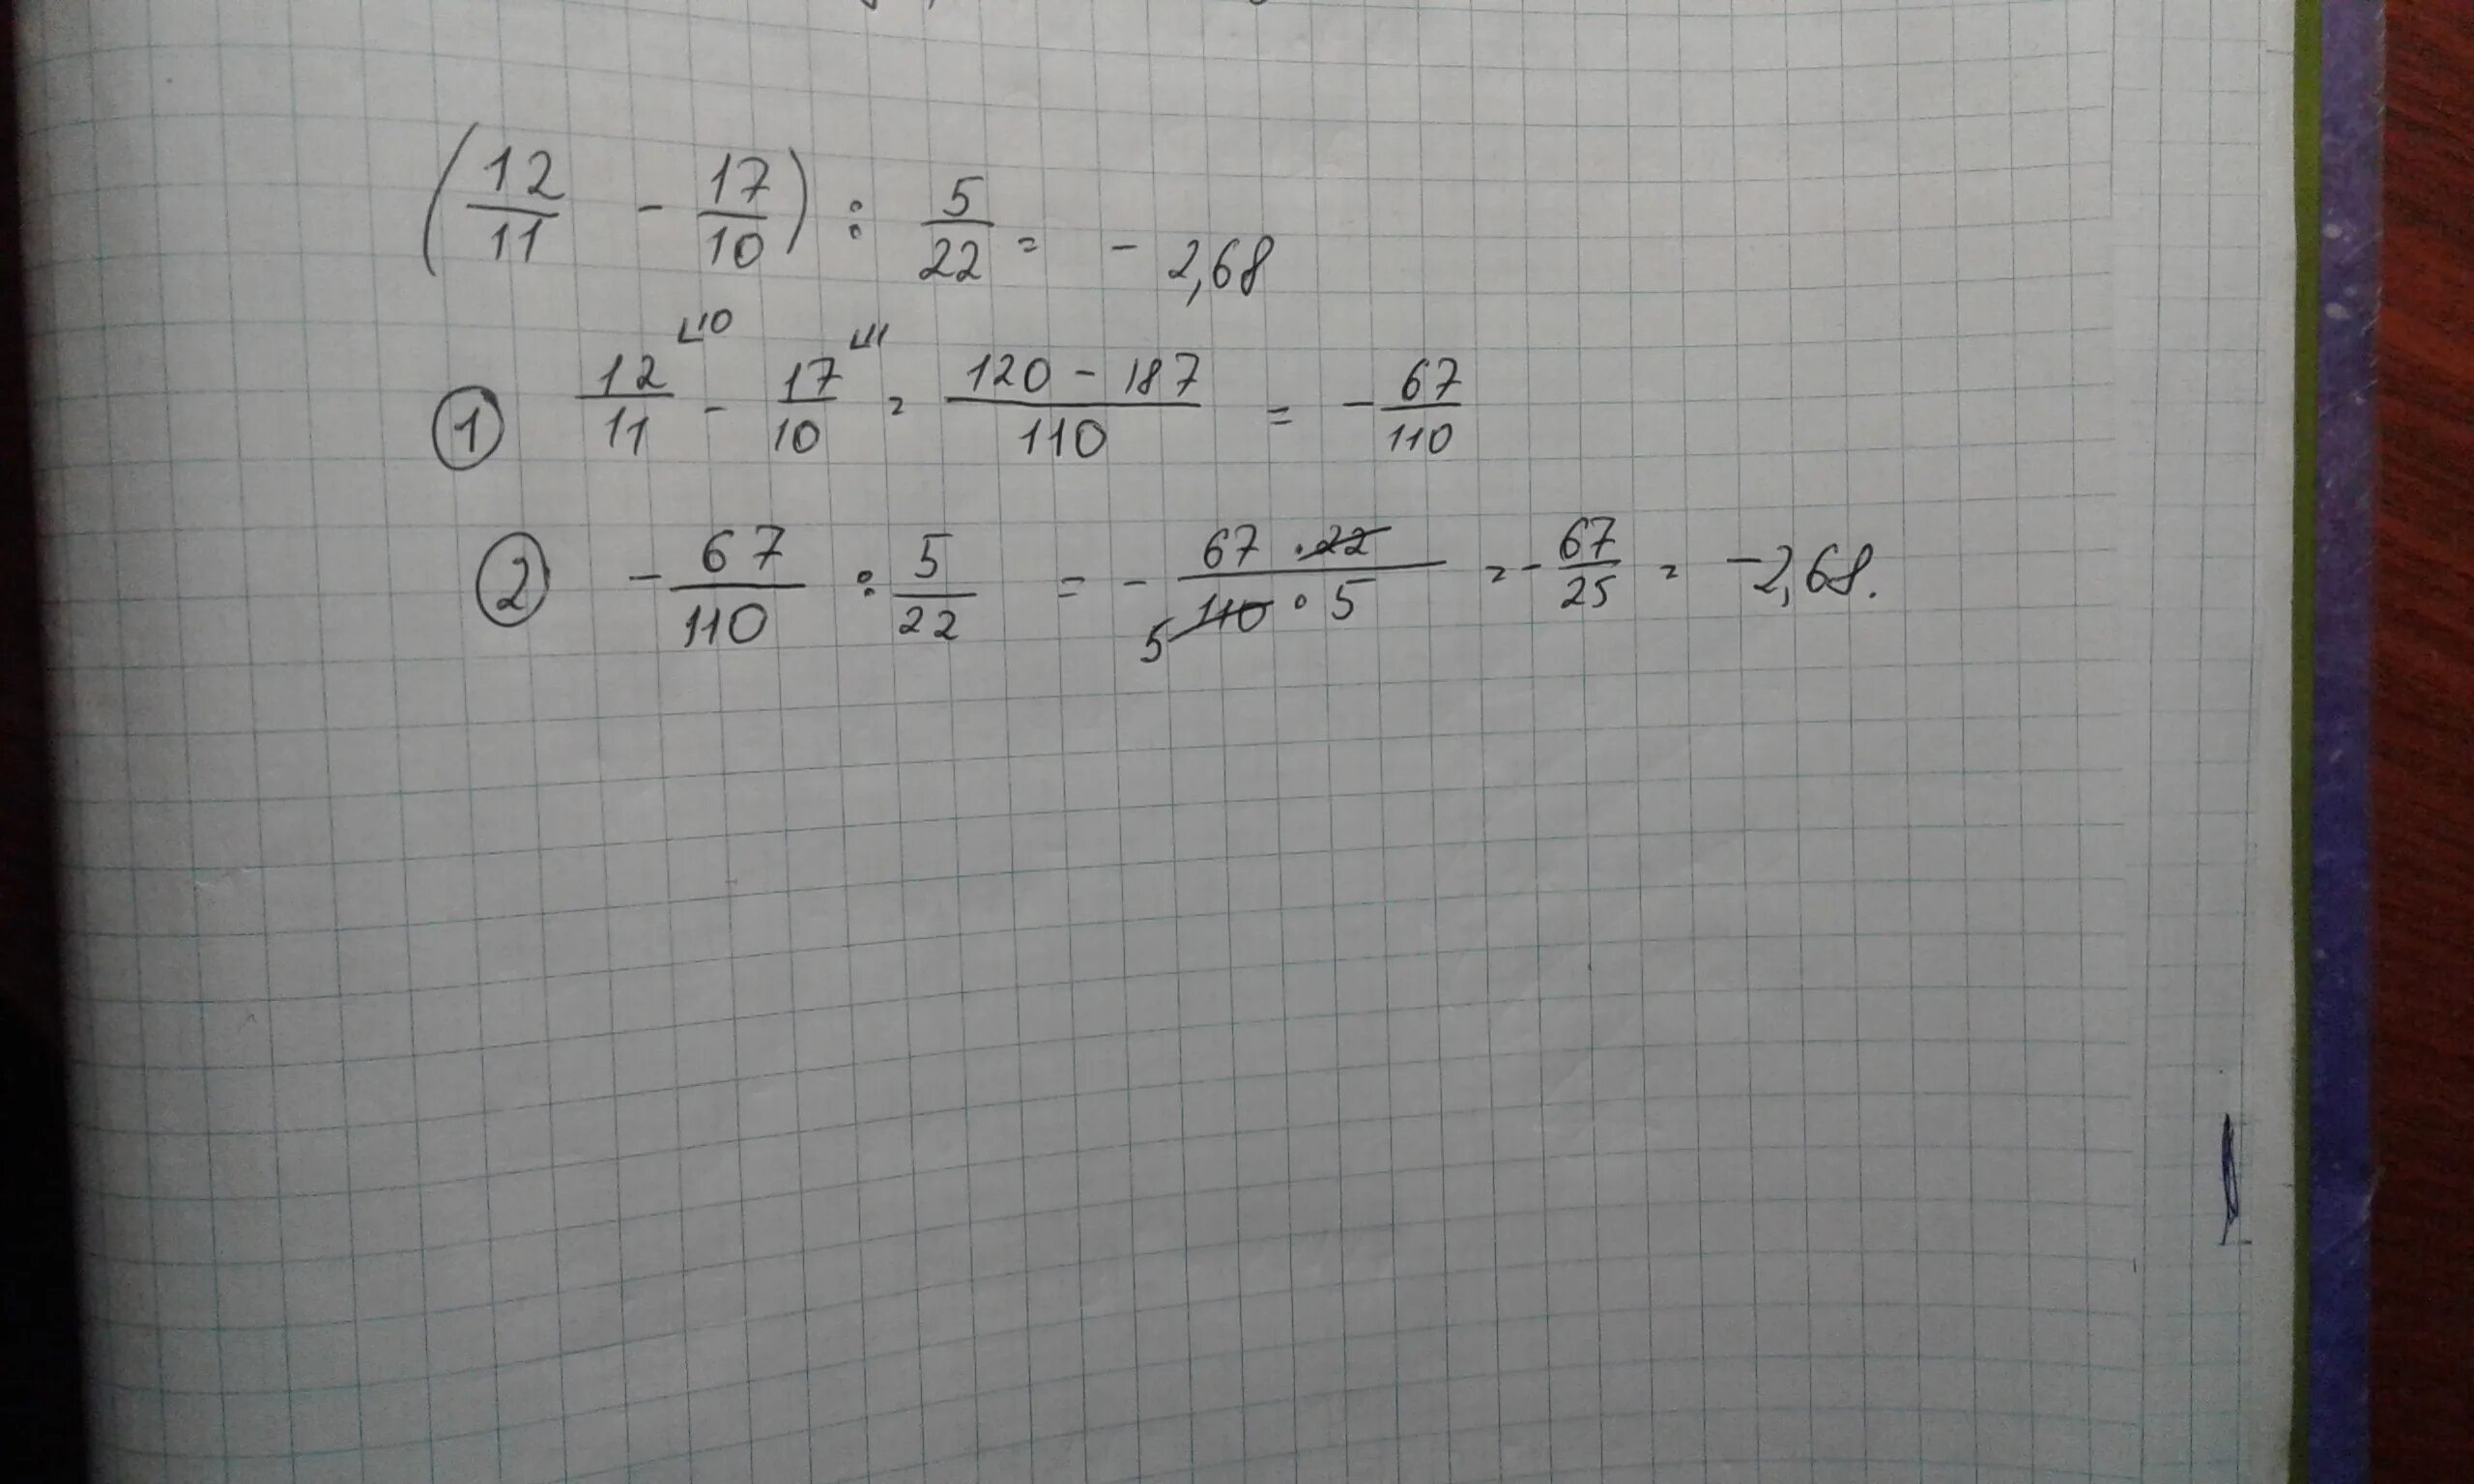 (12/11 - 17/10) : 5/22 = - 2,68
① 12/11 ⌞10 - 17/10 ⌞11 = 120 - 187/110 = - 67/110
② - 67/110 : 5/22 = - 67 · 22/5 110 · 5 = - 67/25 = -2,68.